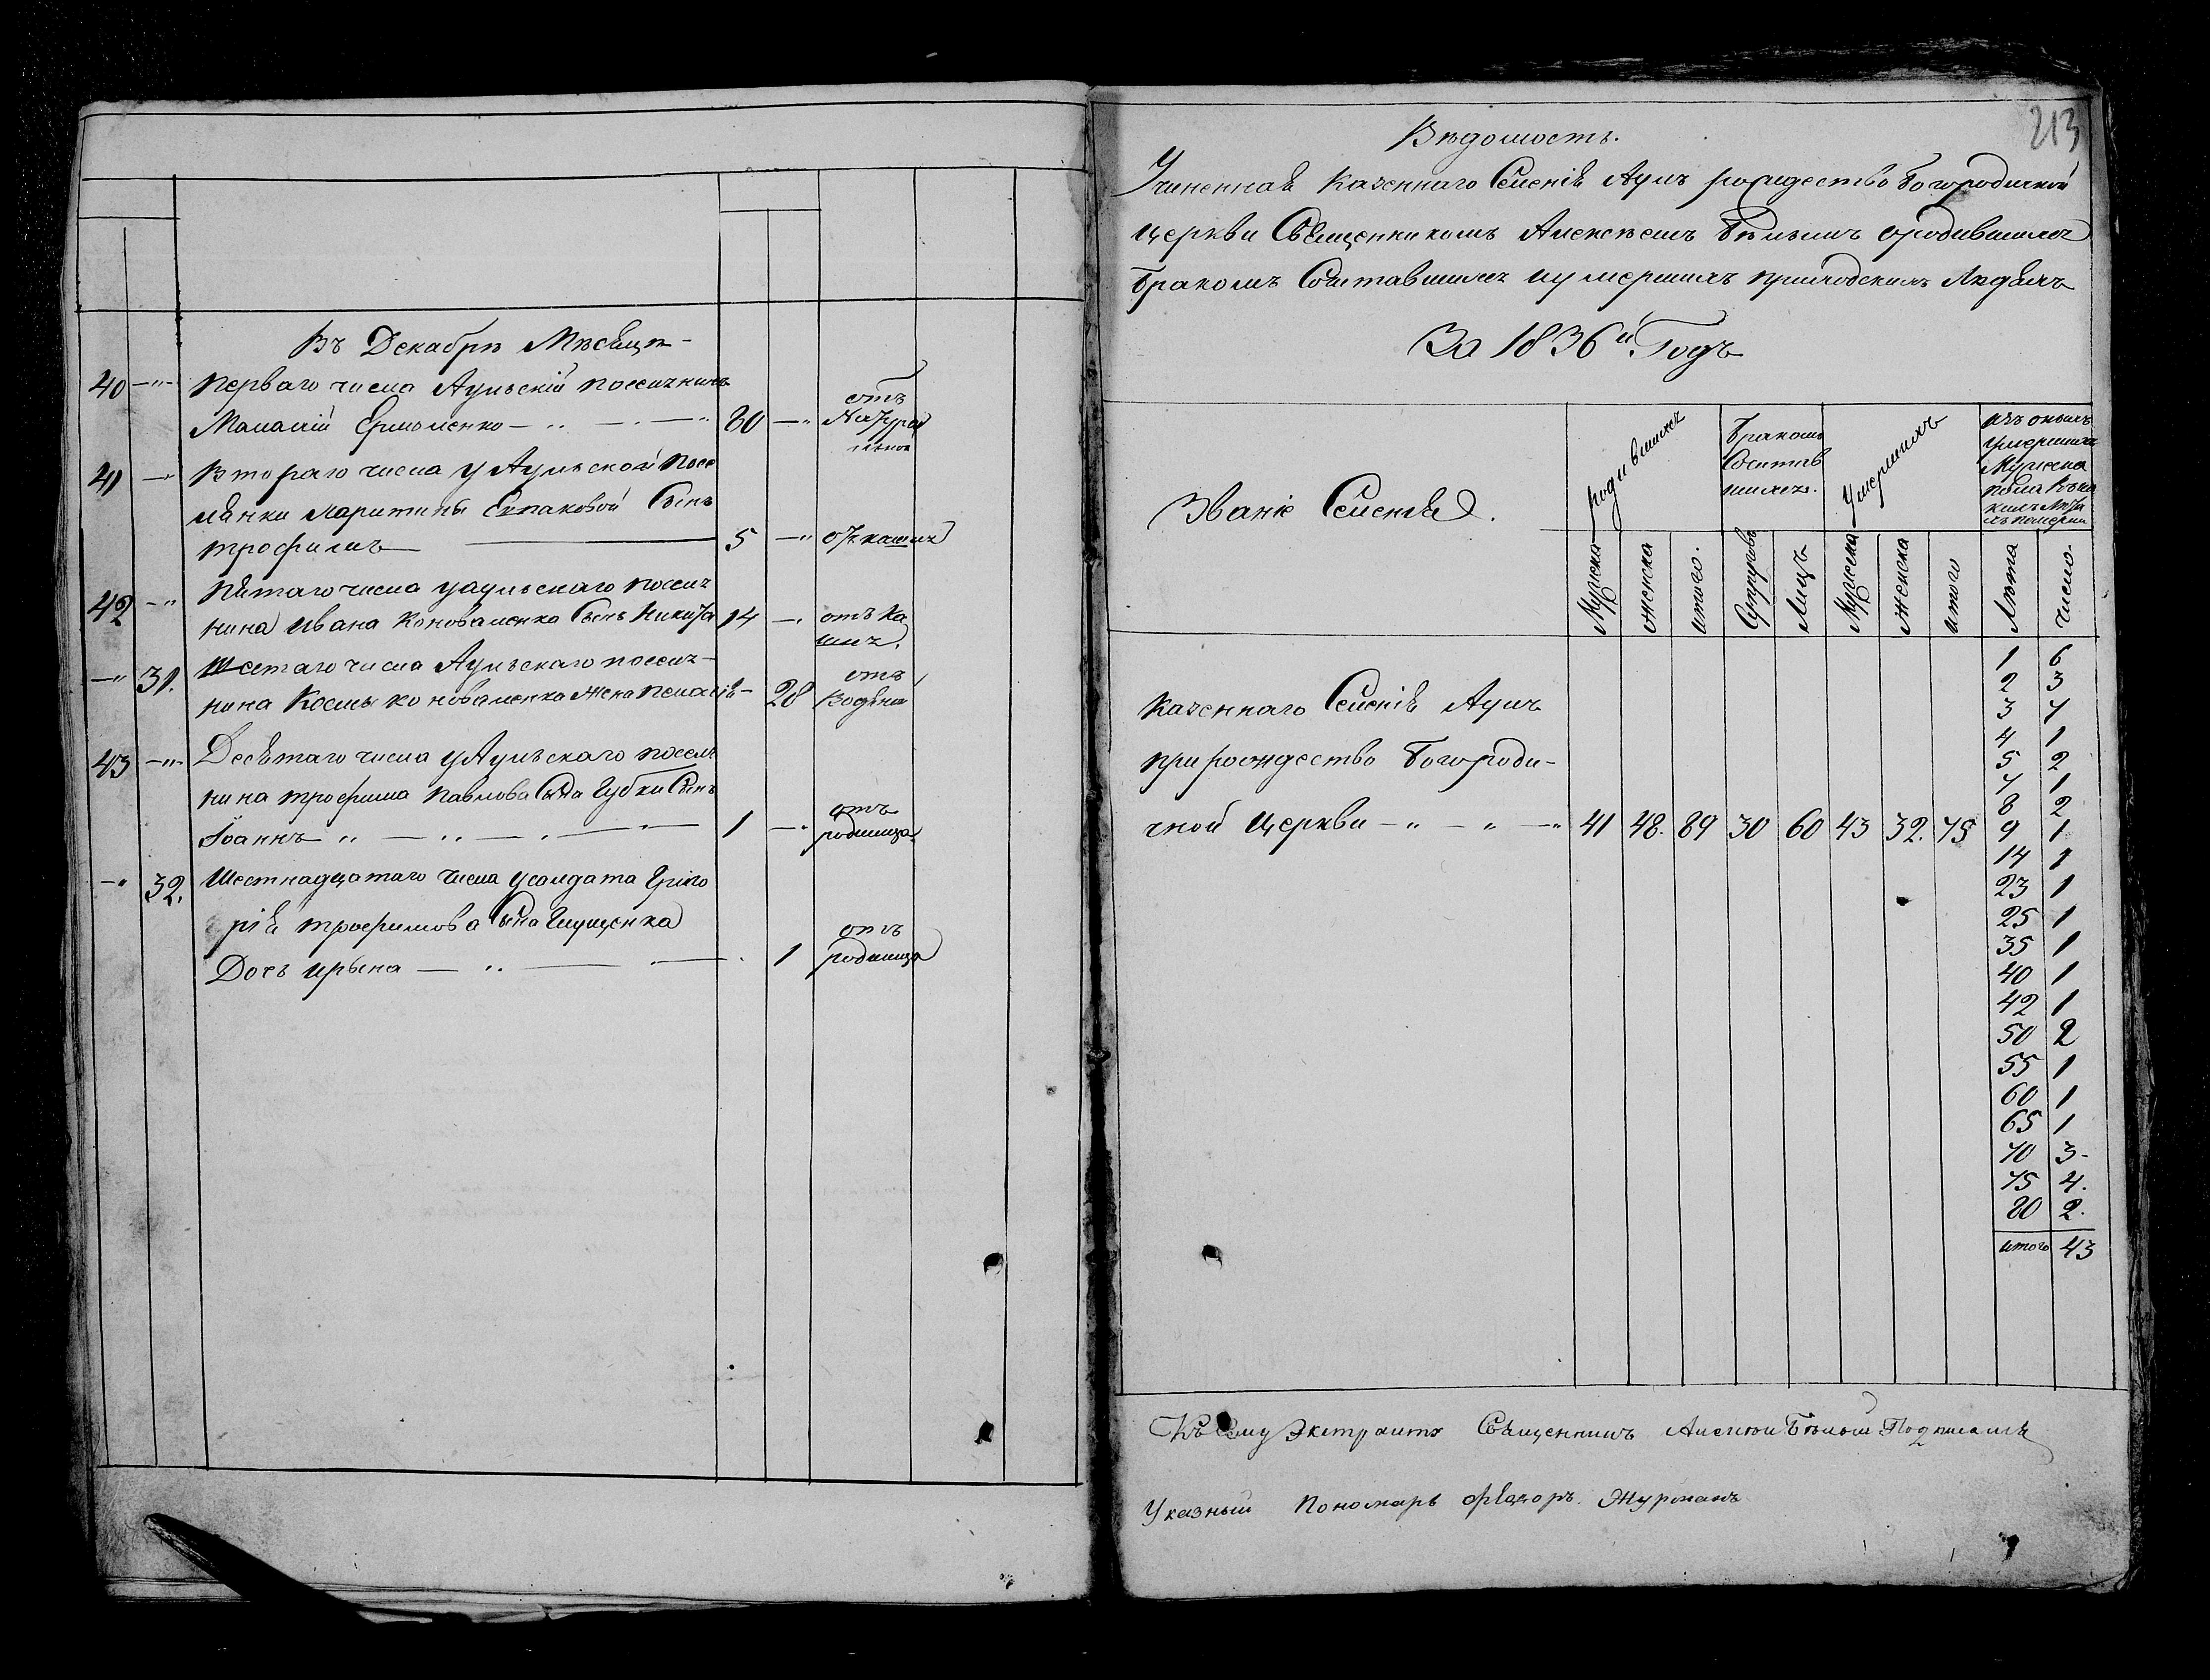 Въ Декабрѣ Мѣсяцѣ -
40 -"- перваго числа Аульскій поселянинъ
Маламій Ермоленко - 80 - отъ Натурал
ьной
41 - Втораго числа у Аульской посе
лянки Харитины Ехпаковой Сынъ
трофимъ 5 -" отъ кашля
42 -" Пятаго числа уаульскаго поселя
нина Ивана Коноваленка Сынъ Никита 14 - отъ ка
шля.
-" 31. Шестаго числа Аульскаго поселя-
нина Космы коноваленка жена Пелагія - 28 отъ Водяни
43 -"- Десятаго числа уАульскаго поселя
нина трофима Павлова Сына Губки Сынъ
Іоаннъ 1 - отъ родимца
-" 32. Шестнадцатаго числа усолдата Григо
рія трофимова Сына Глущенка
Дочь ирына 1 отъ родимца
213
Вѣдомость.
Учиненная Казеннаго Селенія Аулъ рождество Богородичной
церкви Священникомъ Алексѣемъ Бѣлымъ ородившихся
бракомъ Сочетавшихся иумершихъ приходскихъ Людяхъ
За 1836й Годъ
Званіе Селенія.
родившихся
бракомъ
Сочетав
шихся.
Умершихъ
изъ оныхъ
умершихъ
Мужеска
пола Въ ка
кихъ лѣта
хъ померли
Мужска
Женска
итого.
Супруговъ
Лицъ
Мужеска
Женска
итого
Лѣта
число.
Казеннаго Селенія Аулъ
при рождество Богороди-
чной Церкви - " - " - " 41 48. 89 30 60 43 32. 75
1 6
2 3
3 7
4 1
5 2
7 1
8 2
9 1
14 1
23 1
25 1
35 1
40 1
42 1
50 2
55 1
60 1
65 1
70 3-
75 4.
80 2.
итого 43
Къ Сему Экстракту Священникъ Алексѣй Бѣлый Подписался
Указный Пономарь Ѳеодоръ Журманъ